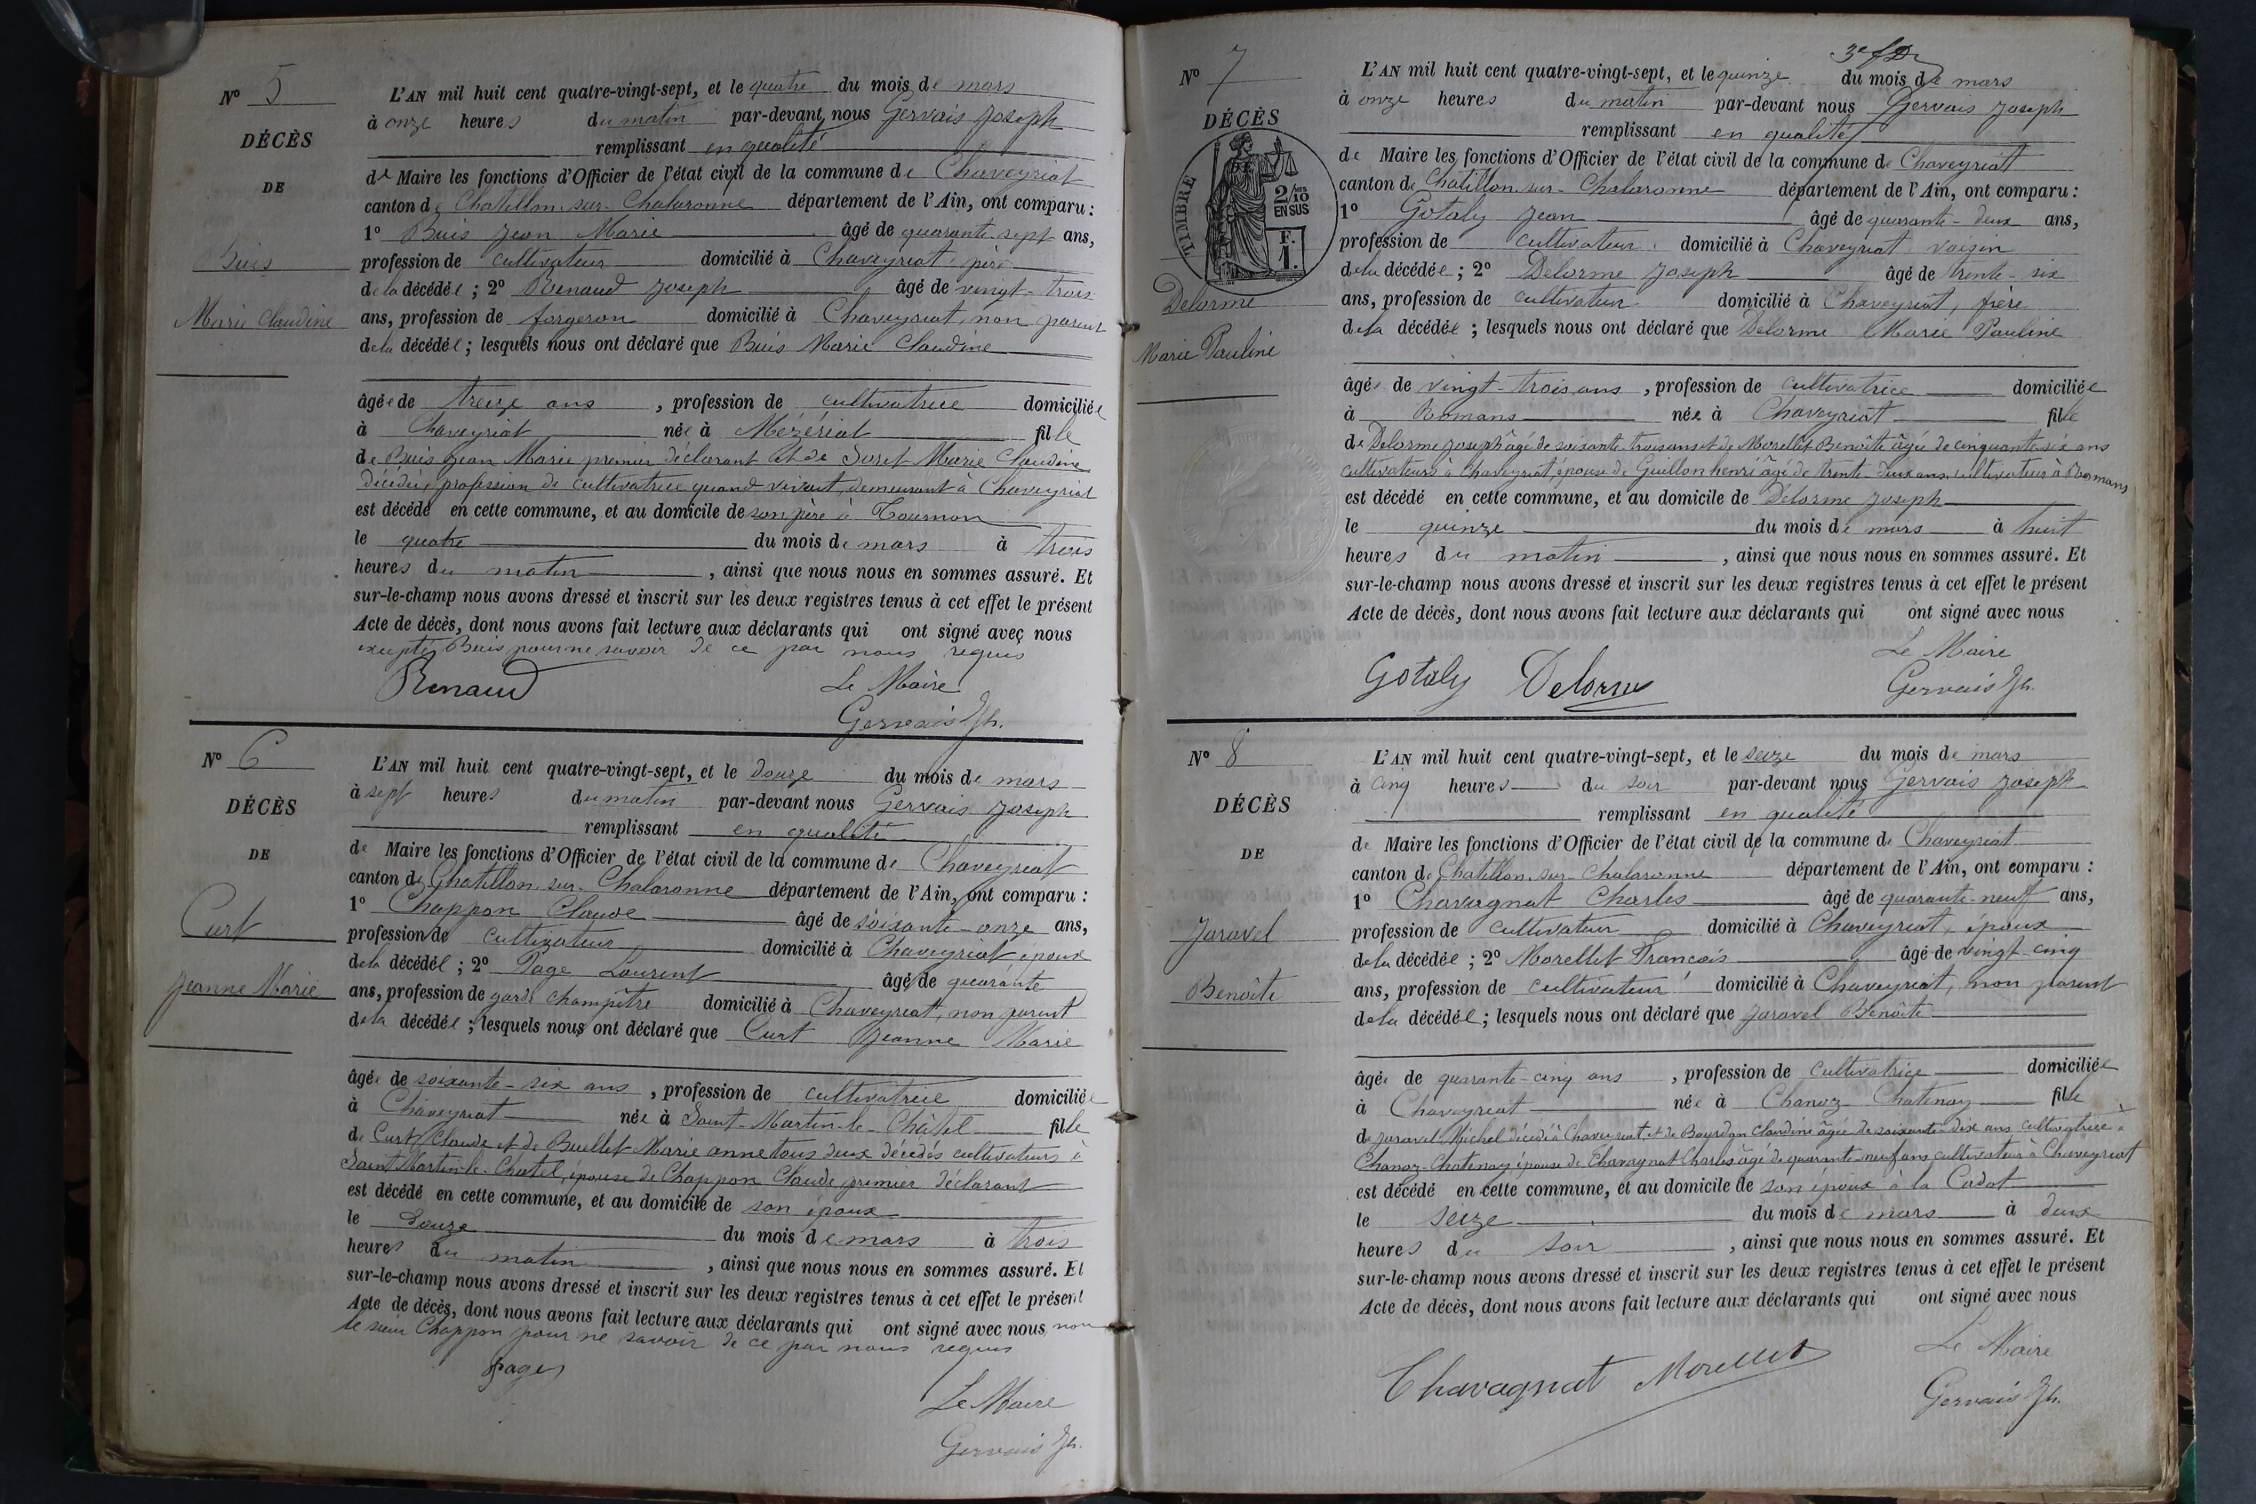 N° 5
DÉCÈS
DE
Buis
Marie Claudine
L'AN mil huit cent quatre-vingt-sept, et le quatre du mois de mars
à onze heures du matin par-devant nous Gervais Joseph
remplissant en qualité
de Maire les fonctions d'Officier de l'état civil de la commune de Chaveyriat
canton de Chatillon-sur-Chalaronne département de l'Ain, ont comparu :
1° Buis Jean Marie âgé de quarante-sept ans,
profession de cultivateur domicilié à Chaveyriat, père
de la décédée ; 2° Renaud Joseph âgé de vingt-trois
ans, profession de forgeron domicilié à Chaveyriat, non parent
de la décédée ; lesquels nous ont déclaré que Buis Marie Claudine
âgée de treize ans, profession de cultivatrice domiciliée
à Chaveyriat née à Mézériat fille
de Buis Jean Marie premier déclarant et de Soret Marie Claudine
décédée, profession de cultivatrice quand vivait, demeurant à Chaveyriat
est décédé en cette commune, et au domicile de son père à Tournon
le quatre du mois de mars à trois
heures du matin, ainsi que nous nous en sommes assuré. Et
sur-le-champ nous avons dressé et inscrit sur les deux registres tenus à cet effet le présent
Acte de décès, dont nous avons fait lecture aux déclarants qui ont signé avec nous
excepté Buis pour ne savoir de ce par nous requis
Renaud
Le Maire
Gervais Jh.
N° 6
DÉCÈS
DE
Curt
Jeanne Marie
L'AN mil huit cent quatre-vingt-sept, et le douze du mois de mars
à sept heures du matin par-devant nous Gervais Joseph
remplissant en qualité
de Maire les fonctions d'Officier de l'état civil de la commune de Chaveyriat
canton de Chatillon-sur-Chalaronne département de l'Ain, ont comparu :
1° Chappon Claude âgé de soixante-onze ans,
profession de cultivateur domicilié à Chaveyriat époux
de la décédée ; 2° Page Laurent âgé de quarante
ans, profession de garde champêtre domicilié à Chaveyriat, non parent
de la décédée ; lesquels nous ont déclaré que Curt Jeanne Marie
âgée de soixante-six ans, profession de cultivatrice domiciliée
à Chaveyriat née à Saint-Martin-le-Châtel fille
de Curt Claude et de Buellet Marie anne tous deux décédés cultivateurs à
Saint Martin-le-Chatel, épouse de Chappon Claude premier déclarant
est décédé en cette commune, et au domicile de son époux
le douze du mois de mars à trois
heures du matin, ainsi que nous nous en sommes assuré. Et
sur-le-champ nous avons dressé et inscrit sur les deux registres tenus à cet effet le présent
Acte de décès, dont nous avons fait lecture aux déclarants qui ont signé avec nous non
le sieur Chappon pour ne savoir de ce par nous requis
page
Le Maire
Gervais Jh.
3e
N° 7
DÉCÈS
TIMBRE
2/10
EN SUS
F.
1.
Delorme
Marie Pauline
L'AN mil huit cent quatre-vingt-sept, et le quinze du mois de mars
à onze heures du matin par-devant nous Gervais Joseph
remplissant en qualité
de Maire les fonctions d'Officier de l'état civil de la commune de Chaveyriat
canton de Chatillon-sur-Chalaronne département de l'Ain, ont comparu :
1° Gotaly Jean âgé de quarante-deux ans,
profession de cultivateur domicilié à Chaveyriat voisin
de la décédée ; 2° Delorme Joseph âgé de trente-six
ans, profession de cultivateur domicilié à Chaveyriat, frère
de la décédée ; lesquels nous ont déclaré que Delorme Marie Pauline
âgée de vingt-trois ans, profession de cultivatrice domiciliée
à Romans née à Chaveyriat fille
de Delorme Joseph âgé de soixante-trois ans et de Morellet Benoîte âgée de cinquante-six ans
cultivateurs à Chaveyriat, épouse de Guillon henri âgé de trente-deux ans, cultivateur à Romans
est décédé en cette commune, et au domicile de Delorme Joseph
le quinze du mois de mars à huit
heures du matin, ainsi que nous nous en sommes assuré. Et
sur-le-champ nous avons dressé et inscrit sur les deux registres tenus à cet effet le présent
Acte de décès, dont nous avons fait lecture aux déclarants qui ont signé avec nous
Le Maire
Gotaly Delorme Gervais Jh.
N° 8
DÉCÈS
DE
Jaravel
Benoîte
L'AN mil huit cent quatre-vingt-sept, et le seize du mois de mars
à cinq heures du soir par-devant nous Gervais Joseph
remplissant en qualité
de Maire les fonctions d'Officier de l'état civil de la commune de Chaveyriat
canton de Chatillon-sur-Chalaronne département de l'Ain, ont comparu :
1° Chavagnat Charles âgé de quarante-neuf ans,
profession de cultivateur domicilié à Chaveyriat, époux
de la décédée ; 2° Morellet François âgé de vingt-cinq
ans, profession de cultivateur domicilié à Chaveyriat, non parent
de la décédée ; lesquels nous ont déclaré que Jaravel Benoîte
âgée de quarante-cinq ans, profession de cultivatrice domiciliée
à Chaveyriat née à Chanoz-Chatenay fille
de Jaravel Michel décédé à Chaveyriat et de Bourdon Claudine âgée de soixante-dix ans cultivatrice à
Chanoz-Chatenay épouse de Chavagnat Charles âgé de quarante-neuf ans cultivateur à Chaveyriat
est décédé en cette commune, et au domicile de son époux à la Cadot
le seize du mois de mars à deux
heures du soir, ainsi que nous nous en sommes assuré. Et
sur-le-champ nous avons dressé et inscrit sur les deux registres tenus à cet effet le présent
Acte de décès, dont nous avons fait lecture aux déclarants qui ont signé avec nous
Le Maire
Chavagnat Morellet Gervais Jh.